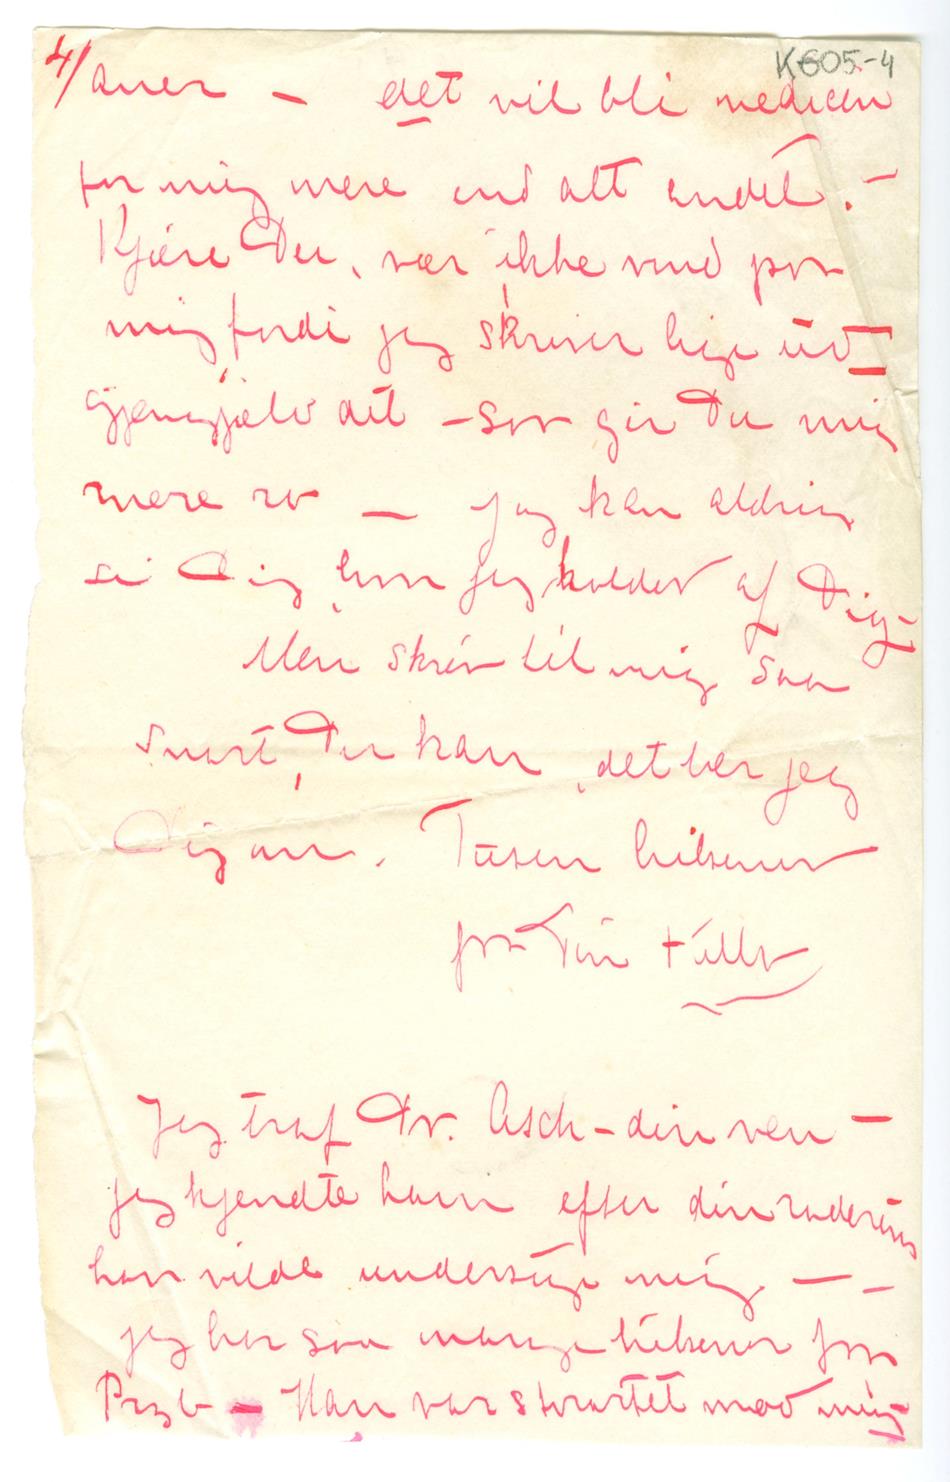 4/
K605-4
auer – det vil bli medicin
for mig mere end alt andet. –
Kjære Du, vær ikke vred paa
mig fordi jeg skriver lige ud –
gjengjæld det – saa gir Du mig
mere ro – Jeg kan aldrig
si Dig hvor jeg holder af Dig –
Men skriv til mig saa
snart Du kan, det ber jeg
Dig om. Tusen hilsener
fra Din Tulla
Jeg traf Dr. Asch – din ven –
jeg kjendte ham efter din radering
han vilde undersøge mig – –
jeg har saa mange hilsener fra
Przb – Han var storartet mod mig